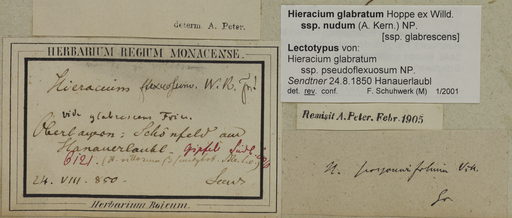 determ. A. Peter.
HERBARIUM REGIUM MONACENSE.
Hieracium flexuosum. W. K.
var. glabrescens
Schönfeld am
Hanauerlaubl. Gipfel
6121.
24. VIII. 850 -
Herbarium Boicum.
Hieracium glabratum Hoppe ex Willd.
ssp. nudum (A. Kern.) NP.
[ssp. glabrescens]
Lectotypus von:
Hieracium glabratum
ssp. pseudoflexuosum NP.
Sendtner 24.8.1850 Hanauerlaubl
det. rev. conf. F. Schuhwerk (M) 1/2001
Remisit A. Peter. Febr. 1905
H.